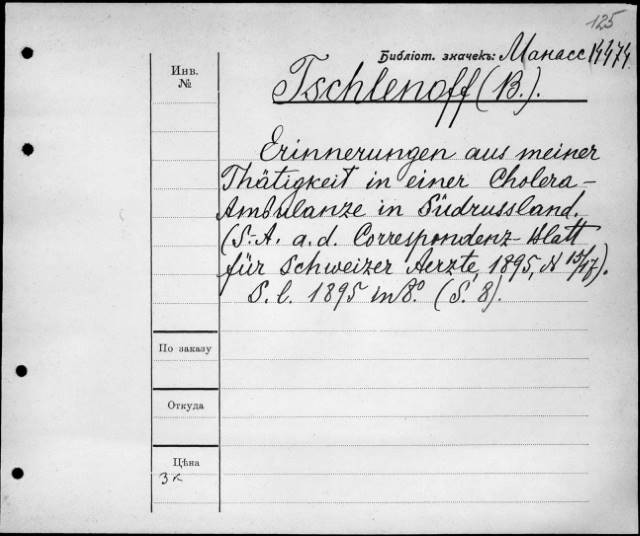 125
Библіот. значекъ: Манасс 14474
Инв.
№
Tschlenoff (B.).
Erinnerungen aus meiner
Thätigkeit in einer Cholera-
Ambulanze in Südrussland.
(S.-A. a. d. Correspondenz-Blatt
für Schweizer Aerzte, 1895, N 15/17).
S. l. 1895 in 8º. (S. 8).
По заказу
Откуда
Цѣна
3 к